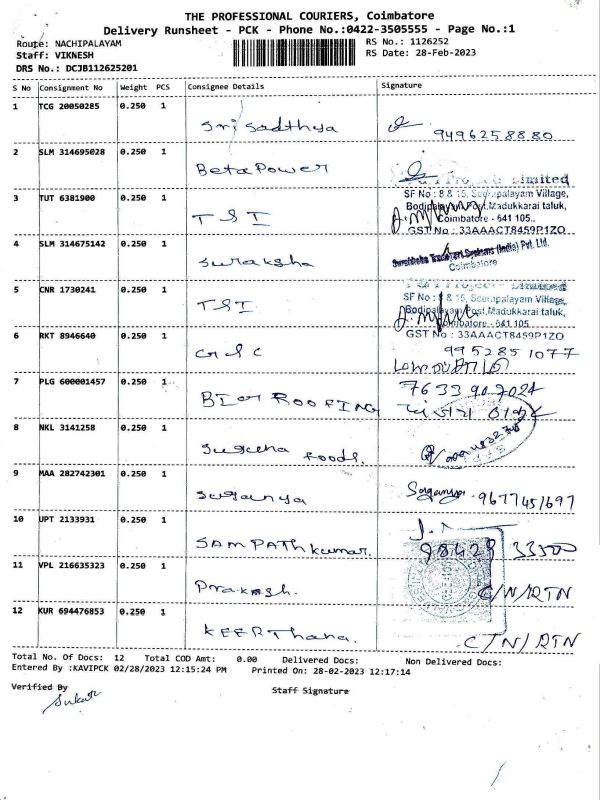 THE PROFESSIONAL COURIERS, Coimbatore
Delivery Runsheet - PCK - Phone No.:0422-3505555 - Page No.:1
Route: NACHIPALAYAM
RS No.: 1126252
Staff: VIKNESH
RS Date: 28-Feb-2023
DRS No.: DCJB112625201
S No Consignment No Weight PCS Consignee Details Signature
1 TCG 20050285 0.250 1
Sri Sadthya 9496258880
2 SLM 314695028 0.250 1
Beta Power
Limited
3 TUT 6381900 0.250 1
TSI
SF No : 8 & 15, Village,
Post, Madukkarai taluk,
Coimbatore - 641 105.
GST No : 33AAACT8459P1ZO
4 SLM 314675142 0.250 1
Suraksha
Systems (India) Pvt. Ltd.
Coimbatore
5 CNR 1730241 0.250 1
TSI
SF No : 8 & 15, Village,
Post, Madukkarai taluk,
Coimbatore - 641 105
GST No : 33AAACT8459P1ZO
6 RKT 8946640 0.250 1
995285 1077
7 PLG 600001457 0.250 1
ROOFING
8 NKL 3141258 0.250 1
foods.
9 MAA 282742301 0.250 1
Suganya
Suganya 9677451697
10 UPT 2133931 0.250 1
SAMPATH kumar.
98428 33500
11 VPL 216635323 0.250 1
Prakash. C/N/RTN
12 KUR 694476853 0.250 1
KEERThana. C/N/RTN
Total No. Of Docs: 12 Total COD Amt: 0.00 Delivered Docs: Non Delivered Docs:
Entered By :KAVIPCK 02/28/2023 12:15:24 PM Printed On: 28-02-2023 12:17:14
Verified By
Staff Signature